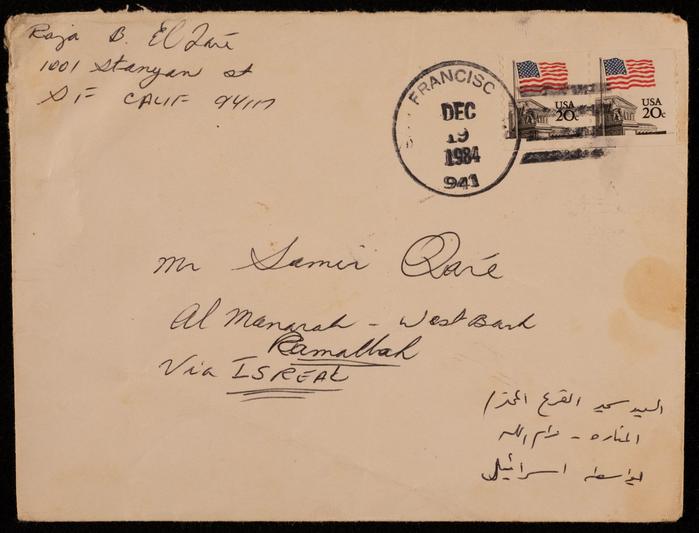 Raja B. El Qaré
1001 Stanyan st
SF CALIF 94117
FRANCISC
DEC
19
1984
941
USA
20c
USA
20c
Mr Samir Qaré
Al Manarah - West Bank
Ramallah
Via ISREAL
السيد سمير القرع المحترم
المناره - رام الله
بواسطة اسرائيل